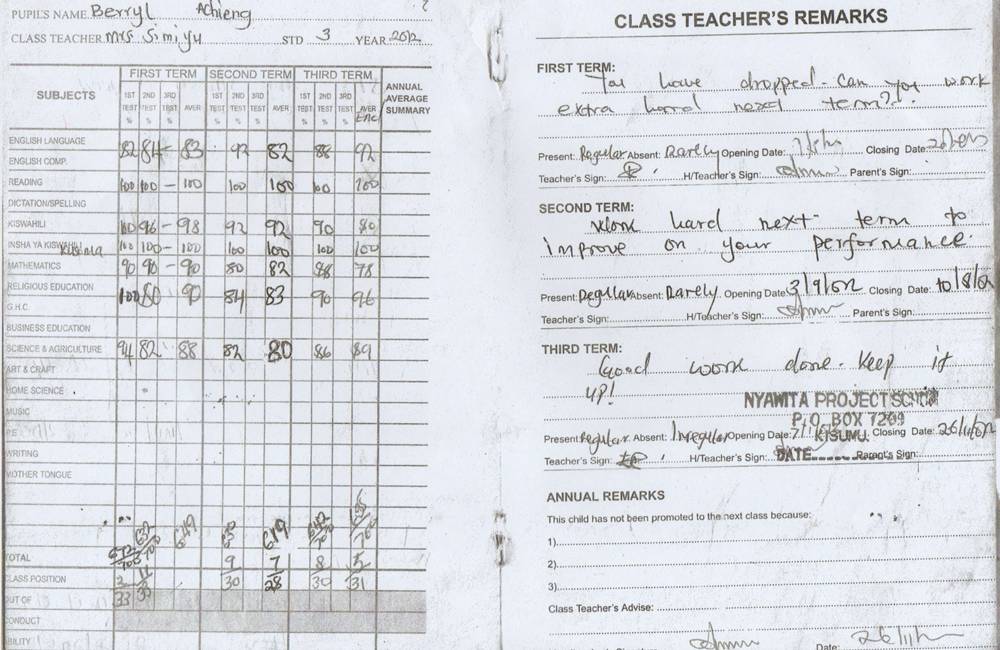 PUPIL'S NAME Berryl Achieng
CLASS TEACHER Mrs Simiyu STD 3 YEAR 2012
SUBJECTS FIRST TERM SECOND TERM THIRD TERM ANNUAL AVERAGE SUMMARY
1ST TEST % 2ND TEST % 3RD TEST % AVER 1ST TEST % 2ND TEST % 3RD TEST % AVER 1ST TEST % 2ND TEST % 3RD TEST % AVER
ENGLISH LANGUAGE
82 84 - 83 92 82 88 92
ENGLISH COMP.
READING 100 100 - 100 100 100 100 100
DICTATION/SPELLING
KISWAHILI 100 96 - 98 92 92 90 80
INSHA YA KISWAHILI Kusoma 100 100 - 100 100 100 100 100
MATHEMATICS 90 90 - 90 80 82 88 78
RELIGIOUS EDUCATION 100 80 90 84 83 90 96
G.H.C.
BUSINESS EDUCATION
SCIENCE & AGRICULTURE 94 82 88 82 80 86 89
ART & CRAFT
HOME SCIENCE
MUSIC
P.E
WRITING
MOTHER TONGUE
632 649 619 642
700 700
TOTAL 9 7 8 5
CLASS POSITION 30 28 30 31
OUT OF 33
CONDUCT
BILITY
CLASS TEACHER'S REMARKS
FIRST TERM:
You have dropped. Can you work
extra hard next term?.
Present: Regular Absent: Rarely Opening Date: Closing Date:
Teacher's Sign: H/Teacher's Sign: Parent's Sign:
SECOND TERM:
Work hard next term to
improve on your performance.
Present: Regular Absent: Rarely Opening Date: 3/9/2012 Closing Date: 10/8/12
Teacher's Sign: H/Teacher's Sign: Parent's Sign:
THIRD TERM:
Good work done. Keep it
up!
NYAWITA PROJECT SCHOOL
P.O. BOX 7209
KISUMU.
DATE
Present: Regular Absent: Irregular Opening Date: Closing Date: 26/11/012
Teacher's Sign: H/Teacher's Sign: Parent's Sign:
ANNUAL REMARKS
This child has not been promoted to the next class because:
1)
2)
3)
Class Teacher's Advise:
Date: 26/11/12